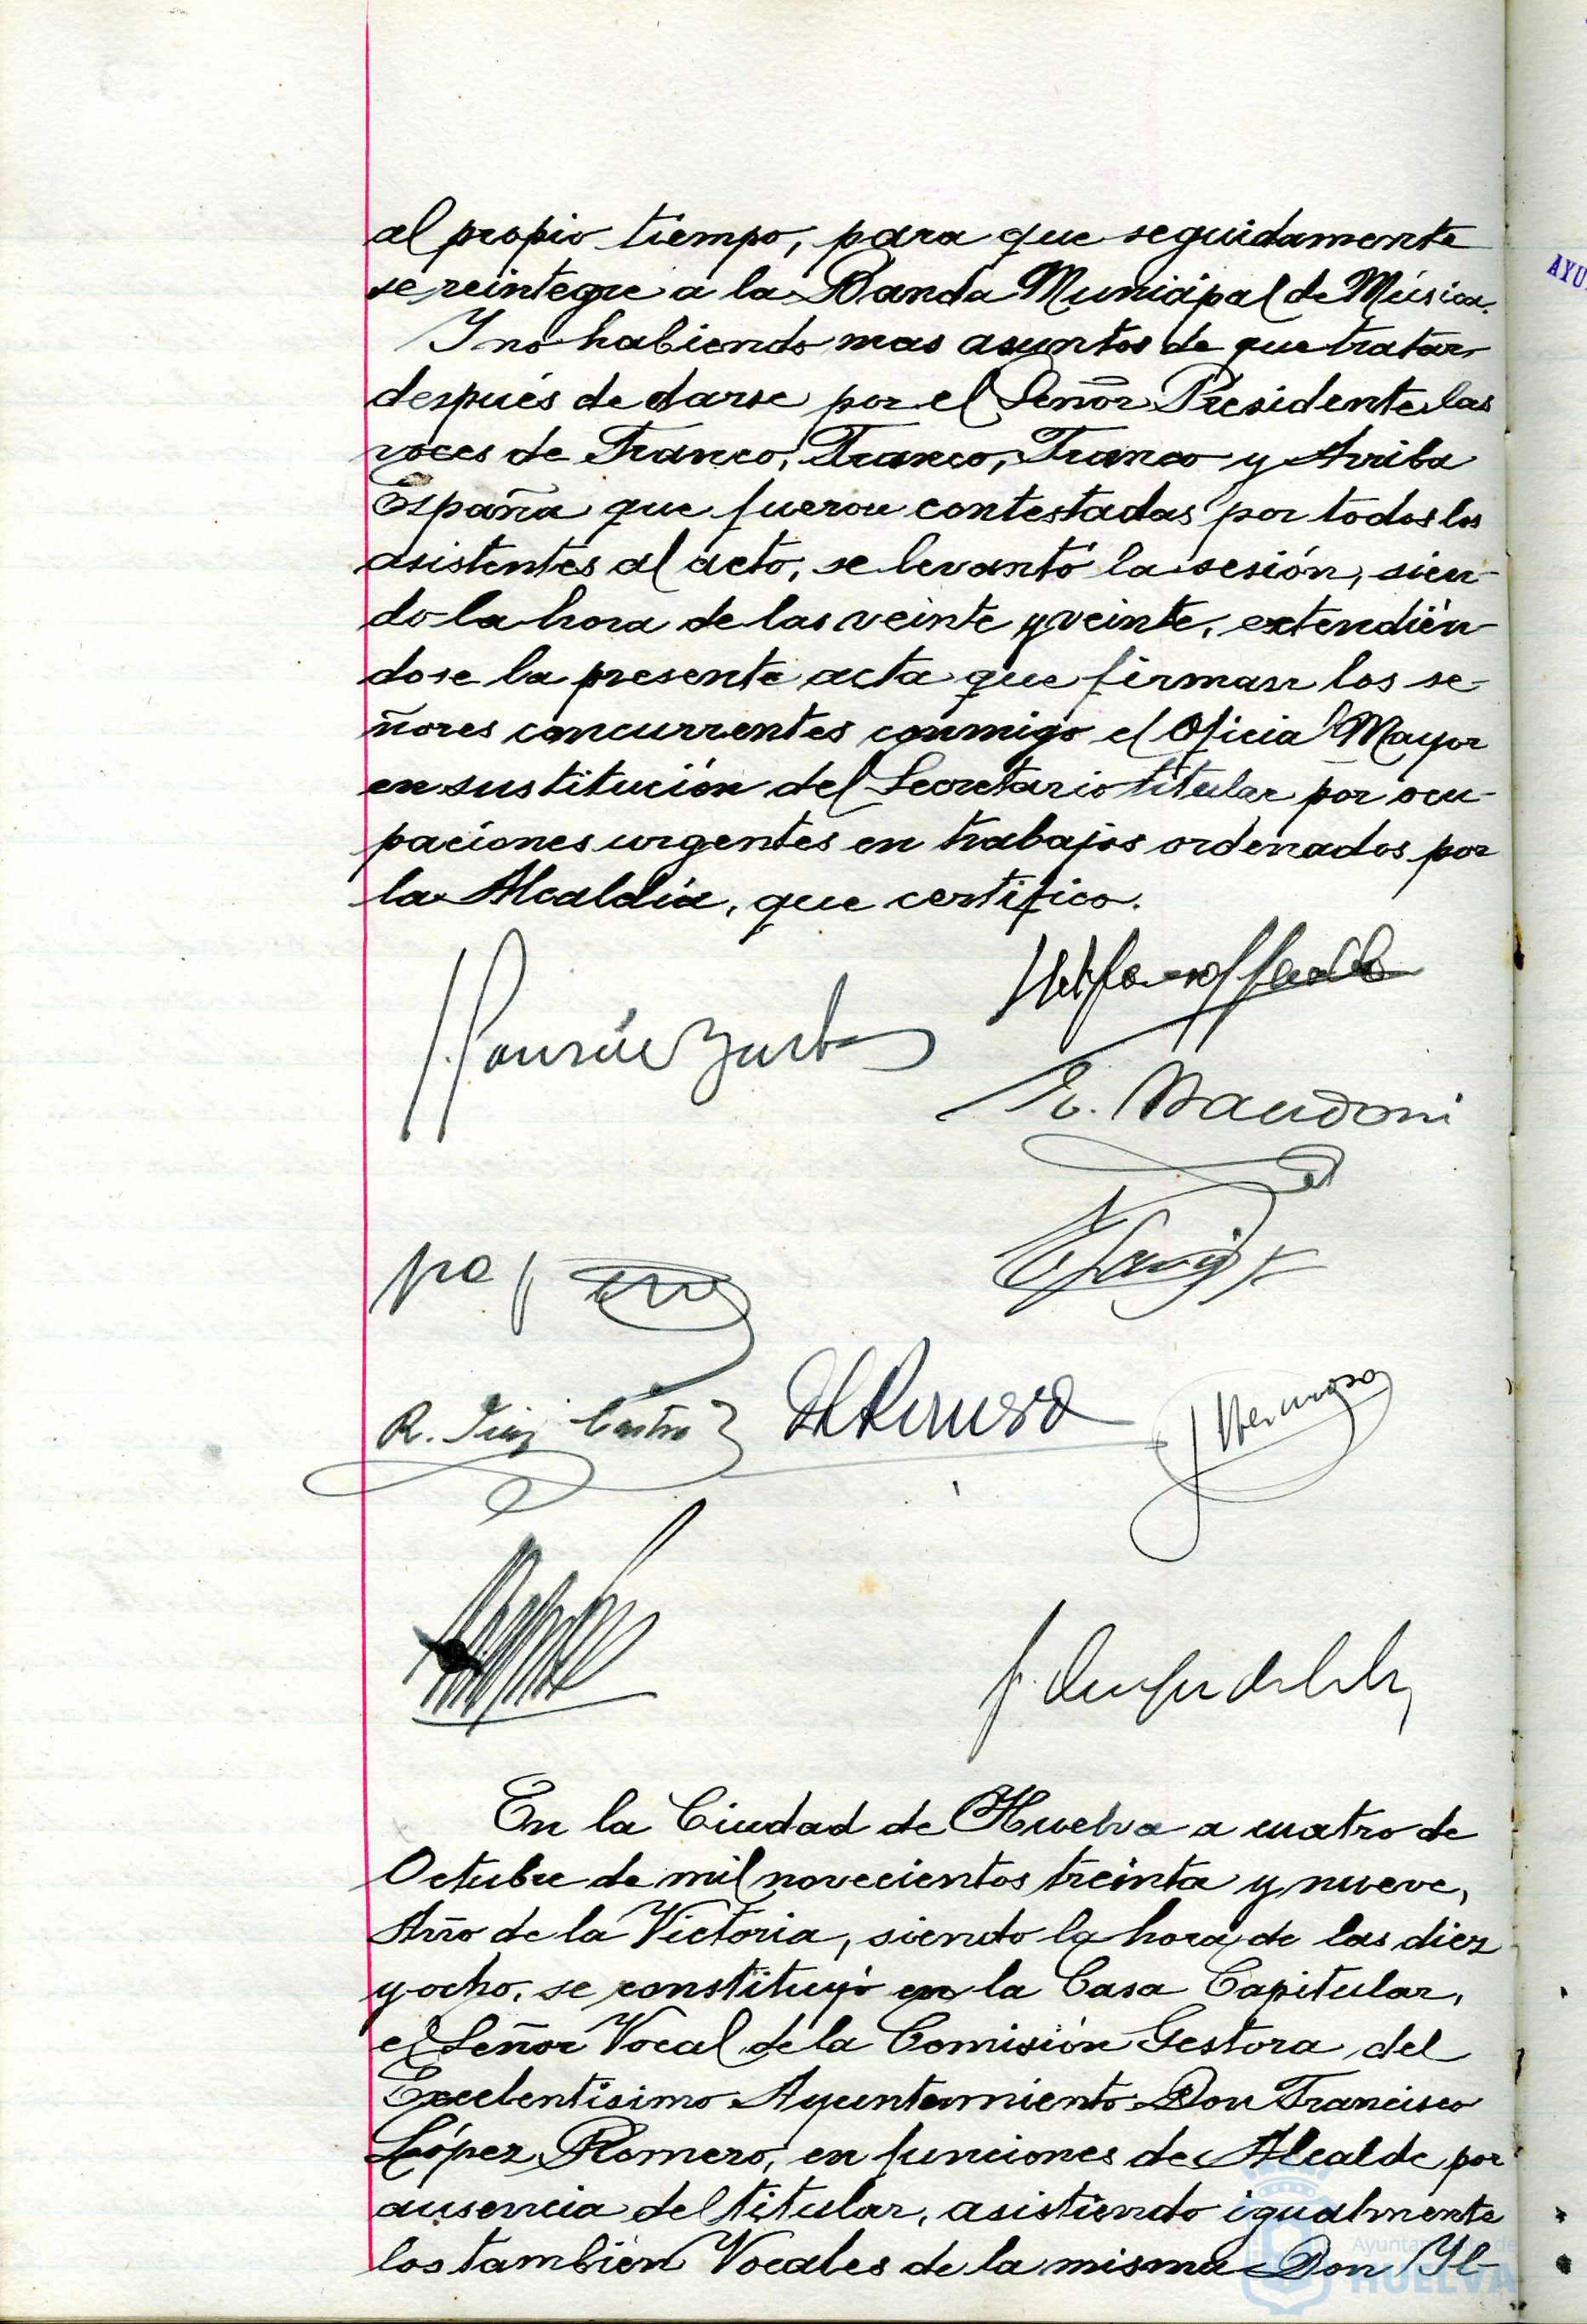 al propio tiempo, para que seguidamente
se reintegre a la Banda Municipal de Música.
Y no habiendo mas asuntos de que tratar
después de darse por el Señor Presidente las
voces de Franco, Franco, Franco y Arriba
España que fueron contestadas por todos los
asistentes al acto, se levantó la sesión, sien-
do la hora de las veinte y veinte, extendién-
dose la presente acta que firman los se-
ñores concurrentes conmigo el Oficial Mayor
en sustitución del Secretario titular por ocu-
paciones urgentes en trabajos ordenados por
la Alcaldía, que certifico.
E. Mandoni
R. Díaz Castro
J. Hermoso
En la Ciudad de Huelva a cuatro de
Octubre de mil novecientos treinta y nueve,
Año de la Victoria, siendo la hora de las diez
y ocho, se constituyó en la Casa Capitular,
el Señor Vocal de la Comisión Gestora del
Excelentísimo Ayuntamiento Don Francisco
López Romero, en funciones de Alcalde por
ausencia del titular, asistiendo igualmente
los también Vocales de la misma Don Il-
Ayuntamiento de
HUELVA
AYU